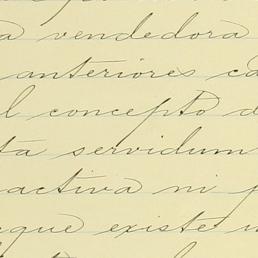 a vendedora
anteriores ca
l concepto d
ta servidum
activa ni p
que existe